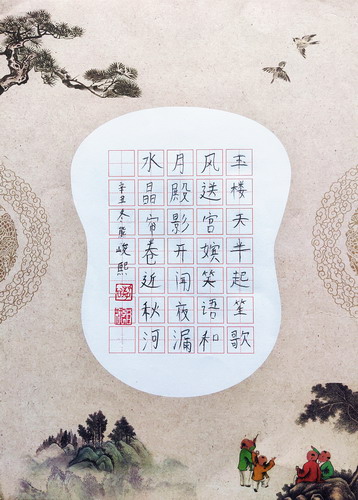 玉楼天半起笙歌
风送宫嫔笑语和
月殿影开闻夜漏
水晶帘卷近秋河
辛丑冬峻熙